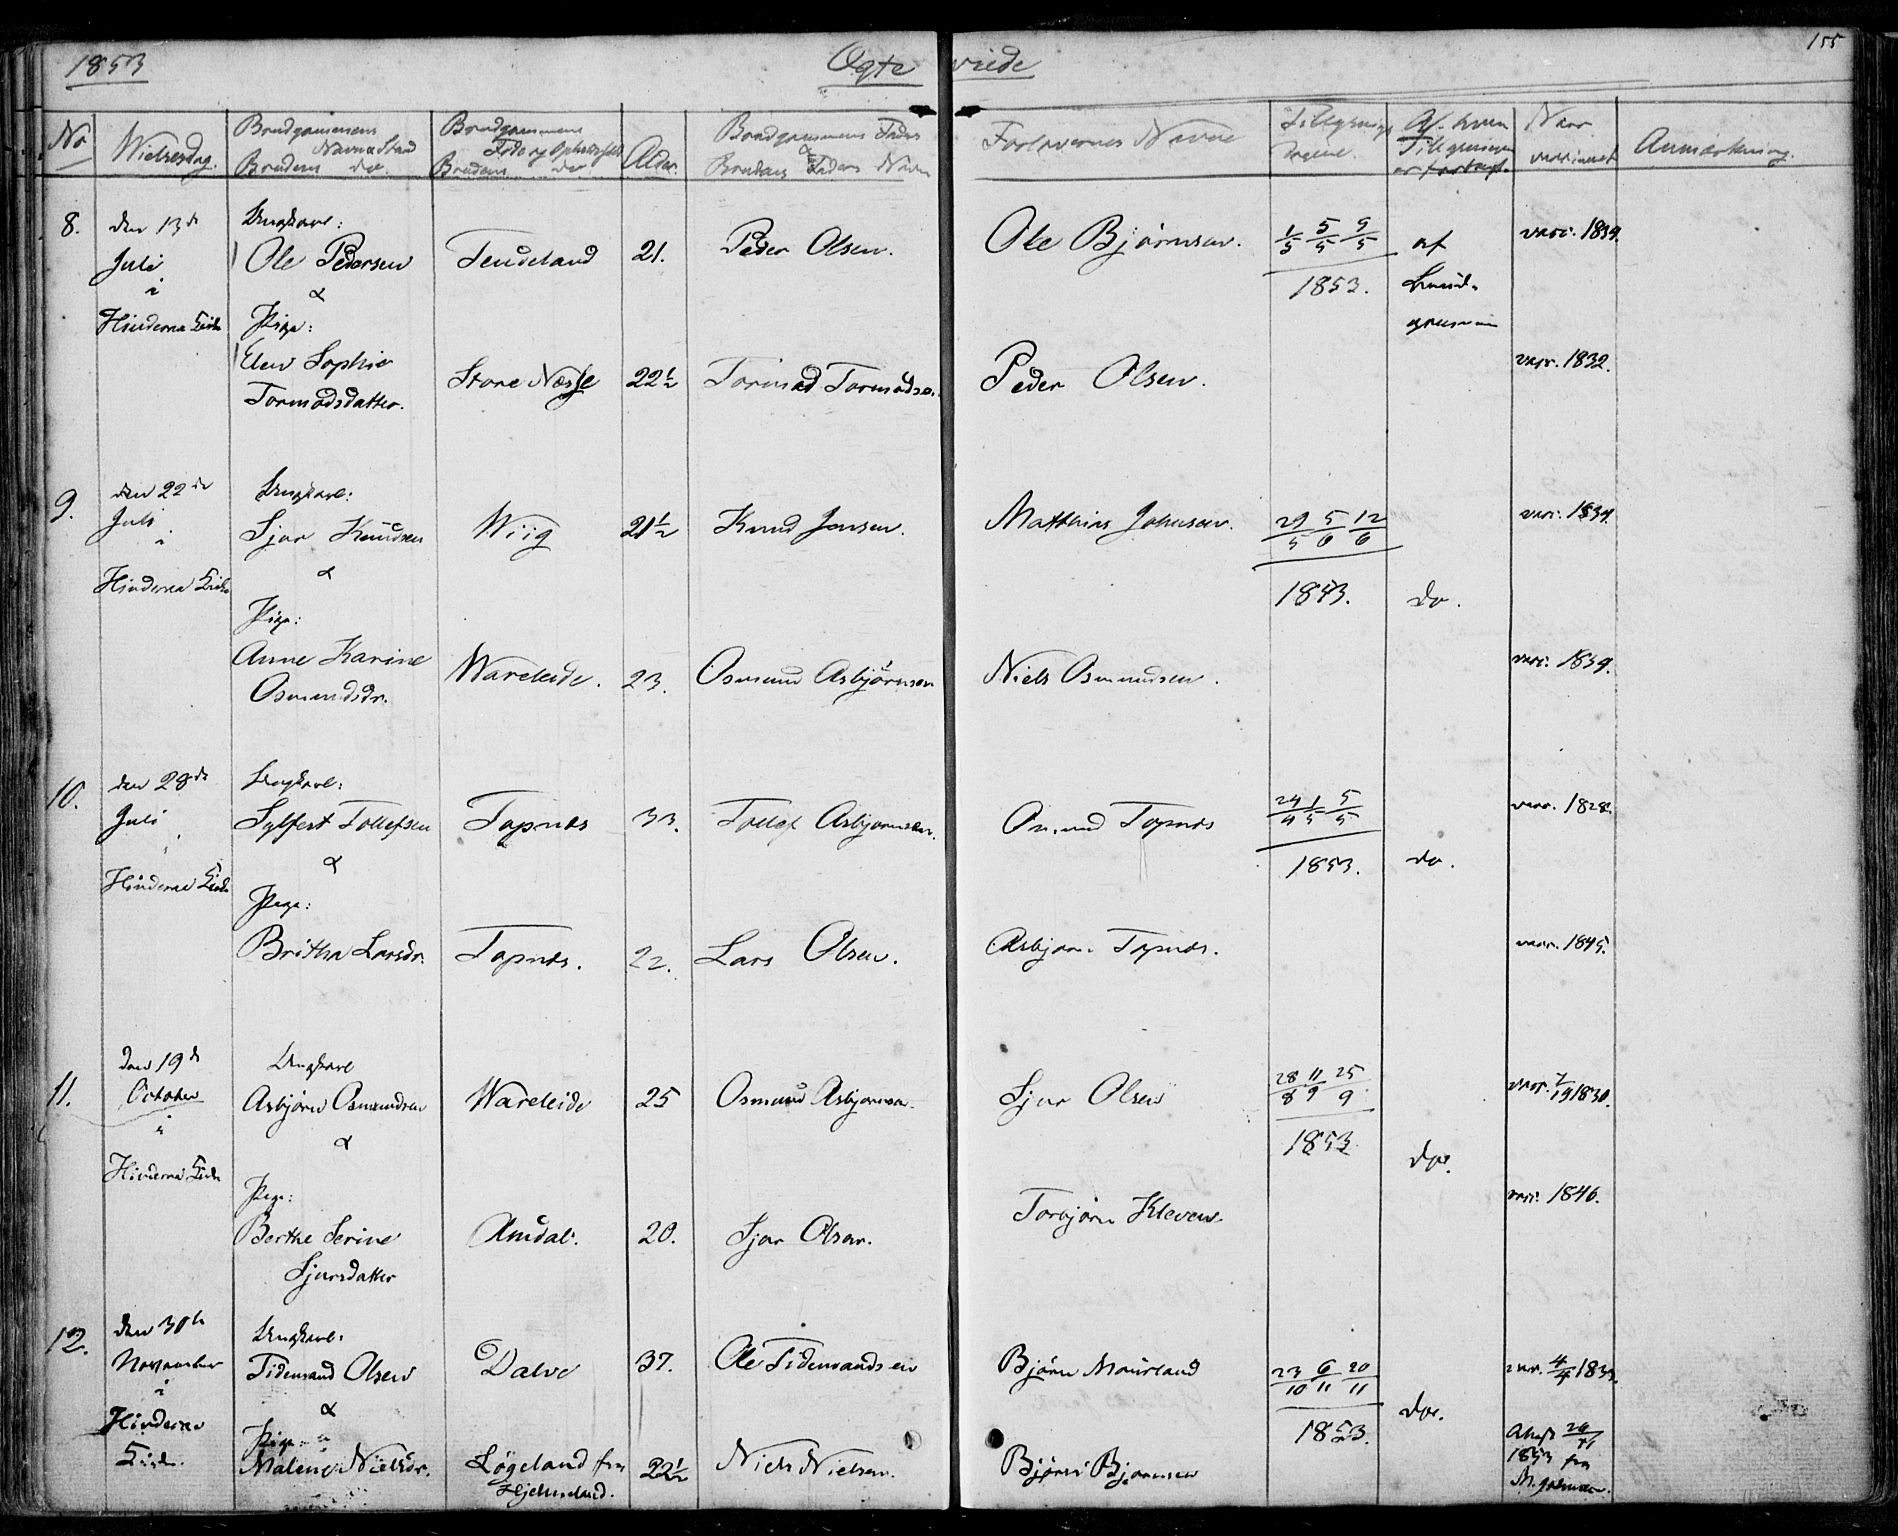 1853 Ægte viede 155
No Vielsesdag. Brudgommens Navn & Stand Brudens do. Brudgommens Føde og Opholdssted Brudens do Alder. Brudgommens Faders & Brudens Faders Navn Forlovernes Navne Tillysnings Dagene. Af hvem Tillysningen er forlangt. Naar vaccineret Anmærkning.
8. den 13de Ungkarl: Ole Bjørnsen. 1/5 5/5 9/5 af vacc. 1839.
Juli Ole Pedersen Tendeland 21. Peder Olsen. 1853. Brud-
i & gommen
Hinderaa Kirke Pige:
Elen Sophie Store Næsse 22½ Tormod Tormodsen. Peder Olsen. vacc. 1832.
Tormodsdatter.
9. den 22de Ungkarl: Matthias Johnsen. 29/5 5/6 12/6 vacc. 1834.
Juli Sjur Knudsen Wiig 21½ Knud Jensen.
i & 1853. do.
Hinderaa Kirke Pige:
Anne Karine Wareleide. 23. Osmund Asbjørnsen Niels Osmundsen. vacc. 1839.
Osmundsdr.
10. den 28de Ungkarl: 24/4 1/5 5/5 vacc. 1828.
Juli Sylfest Tollefsen Tapnes 33. Tollef Asbjørnsen. Osmund Tapnes
& 1853. do.
Hinderaa Kirke Pige:
Britha Larsdr. Tapnes. 22. Lars Olsen. Asbjørn Tapnes. vacc. 1845.
11. den 19de Ungkarl 28/8 11/9 25/9
October Asbjørn Osmundsen Wareleide 25 Osmund Asbjørnsen. Sjur Olsen vacc. 7/9 1830.
i & 1853. do.
Hinderaa Kirke Pige: Torbjørn Kleven vacc. 1846.
Berthe Serine Amdal. 20. Sjur Olsen.
Sjursdatter
12. den 30te Ungkarl:
November Tidemand Olsen Dalve 37. Ole Tidemandsen Bjørn Mourland 23/10 6/11 20/11 vac. 4/4
i & do.
Hinderaa Pige 1853.
Kirke. Malene Nielsdr. Løgeland fra 22½ Niels Nielsen. Bjørn Bjørnsen 1853 fra
Hjelmeland.